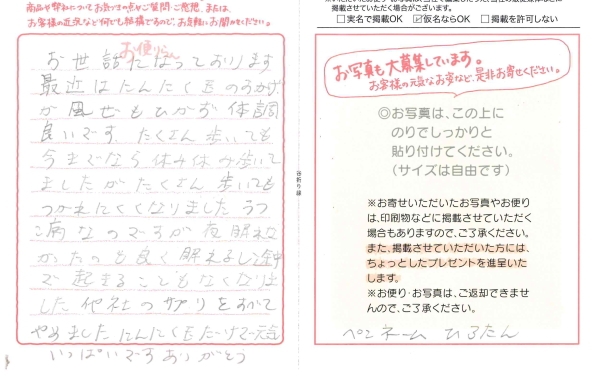 商品や弊社についてお気づきの点やご質問・ご感想、または、
お客様の近況など何でも結構ですので、お気軽にお聞かせください。
お便りらん
お世話になっております
最近はにんにく玉のおかげ
か風ぜもひかず体調
良いです。たくさん歩いても
今までなら休み休み歩いて
ましたがたくさん歩いても
つかれにくくなりました うつ
病なのですが夜眠れな
かったのも良く眠えるし途中
で起きることもなくなりま
した 他社のサプリをすべて
やめました にんにく玉だけで元気
いっぱいです ありがとう
谷折り線
掲載させていただく場合がございます。
□実名で掲載OK ☑仮名ならOK □掲載を許可しない
お写真も大募集しています。
お客様の元気なお姿など、是非お寄せください。
◎お写真は、この上に
のりでしっかりと
貼り付けてください。
（サイズは自由です）
※お寄せいただいたお写真やお便り
は、印刷物などに掲載させていただく
場合もありますので、ご了承ください。
また、掲載させていただいた方には、
ちょっとしたプレゼントを進呈いた
します。
※お便り・お写真は、ご返却できませ
んので、ご了承ください。
ペンネーム ひろたん